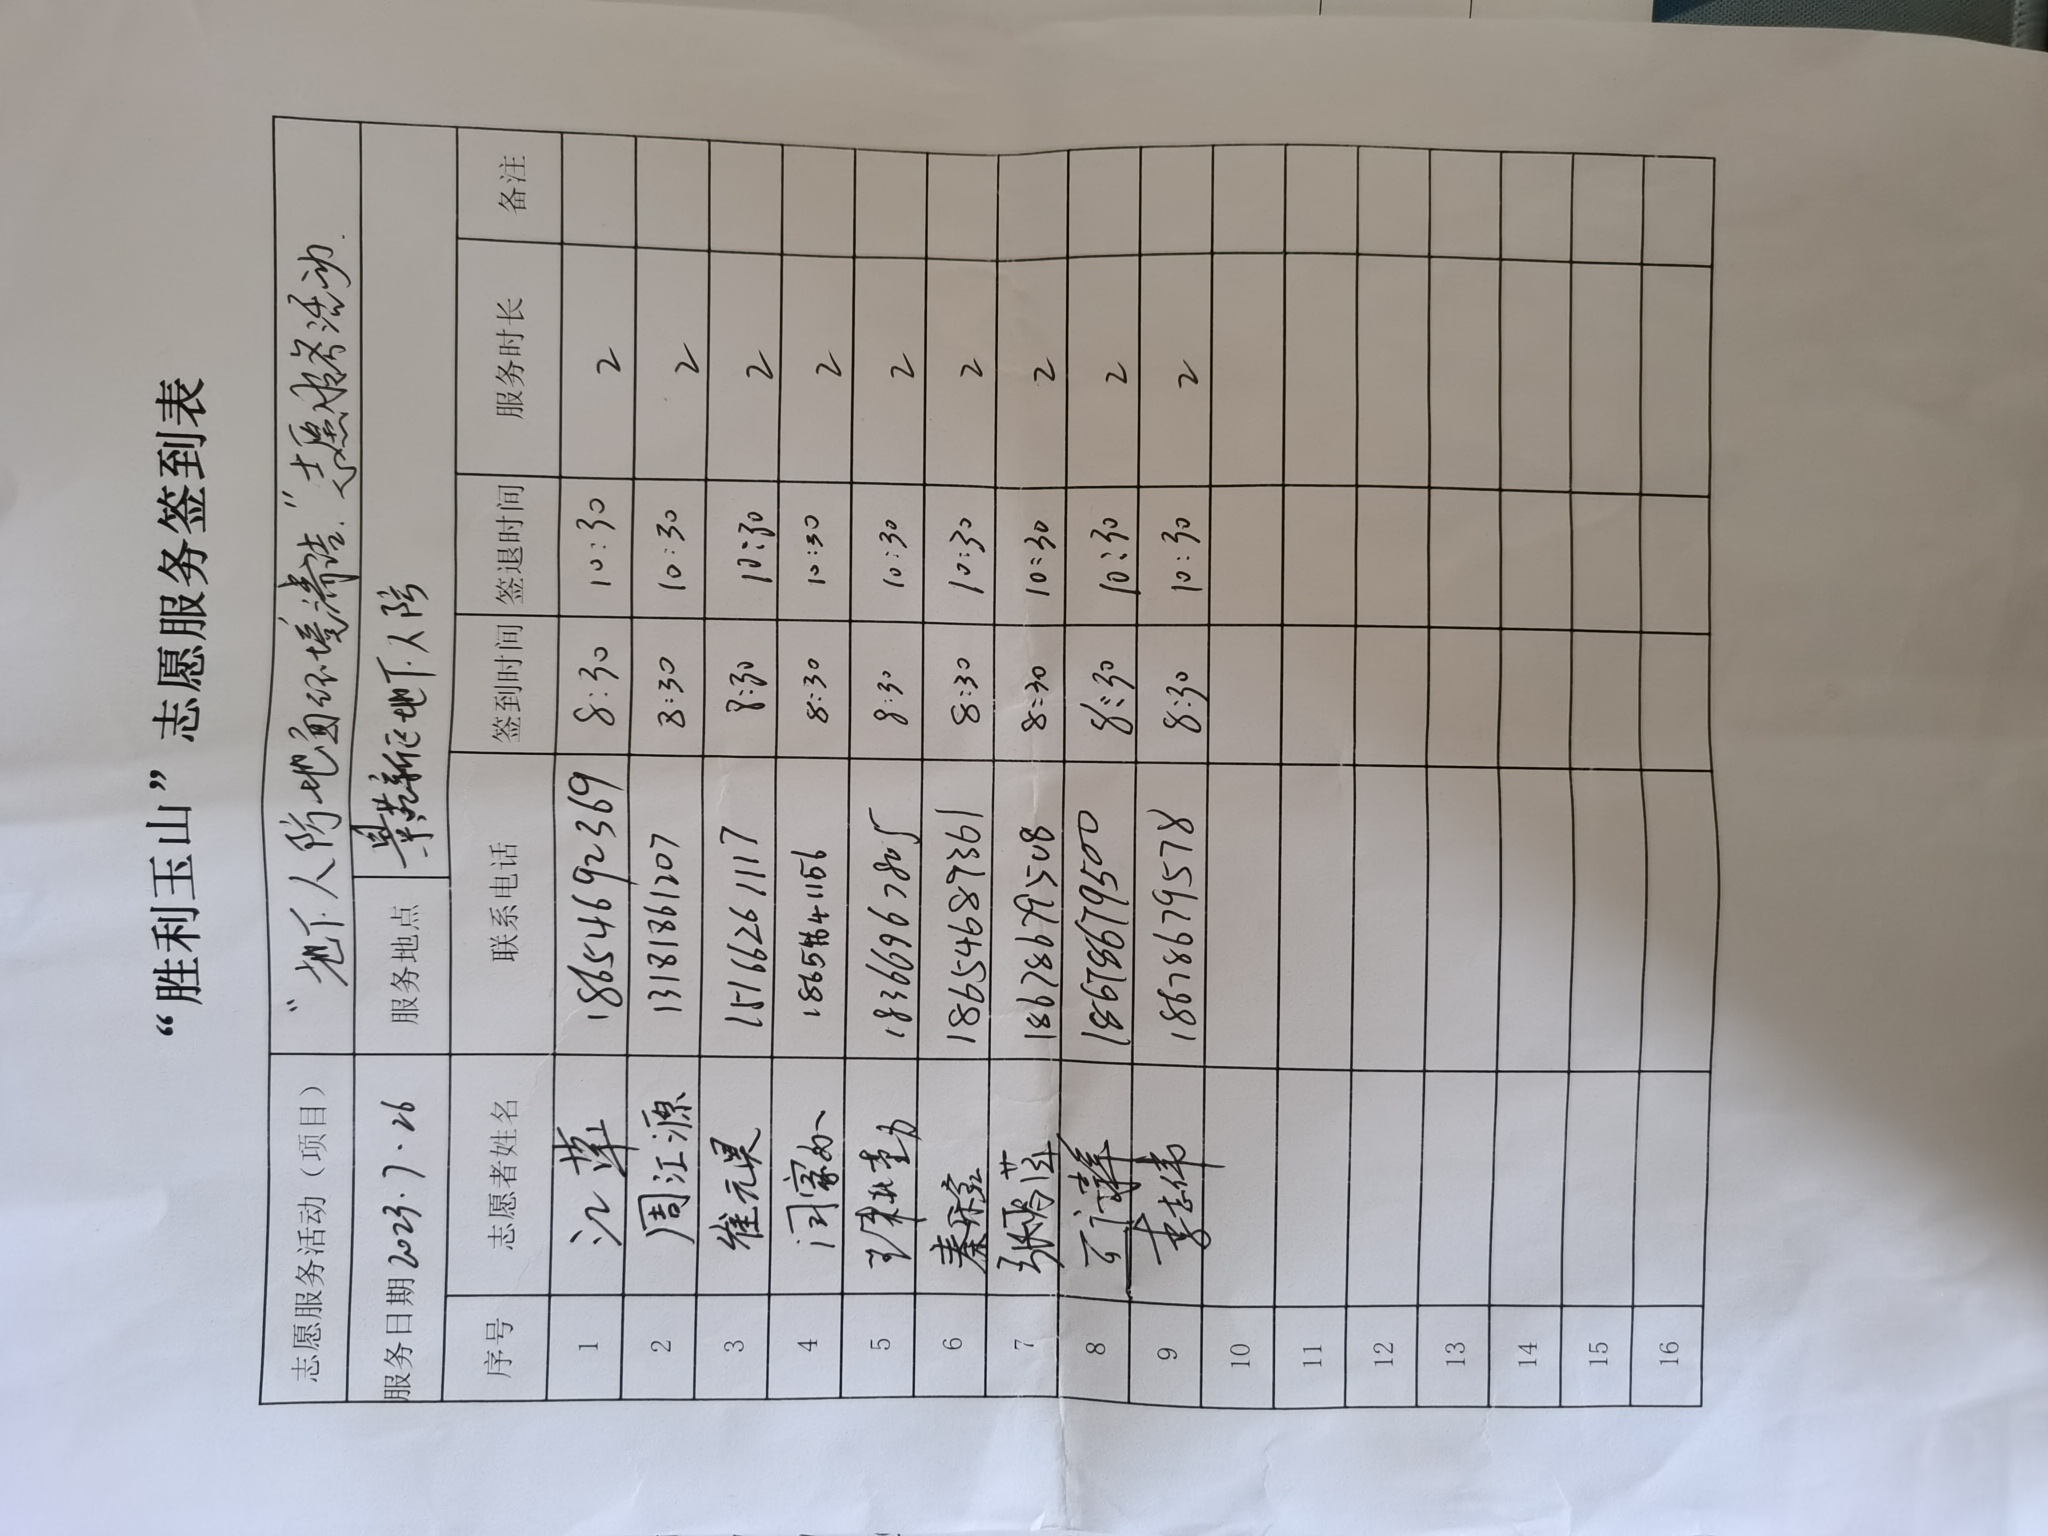 “胜利玉山”志愿服务签到表
志愿服务活动（项目） “地下人防地面环境清洁”志愿服务活动.
服务日期 2023.7.26 服务地点 景苑新区地下人防
序号 志愿者姓名 联系电话 签到时间 签退时间 服务时长 备注
1 江萍 18654692369 8:30 10:30 2
2 周江源 13181861207 8:30 10:30 2
3 崔元昊 15166261117 8:30 10:30 2
4 18654641156 8:30 10:30 2
5 18366967805 8:30 10:30 2
6 秦 18654687361 8:30 10:30 2
7 张 18678679508 8:30 10:30 2
8 18678679500 8:30 10:30 2
9 李志伟 18678679578 8:30 10:30 2
10
11
12
13
14
15
16